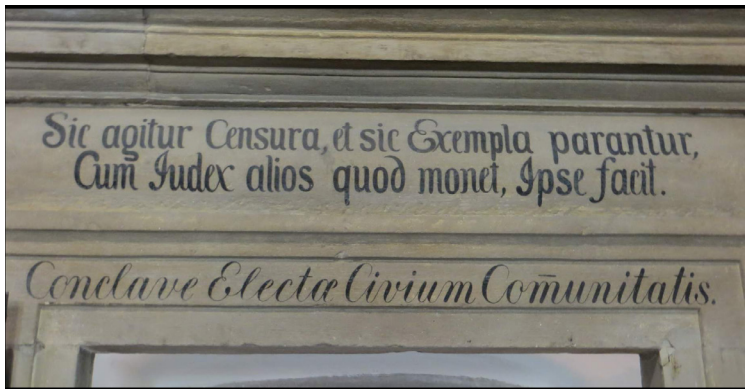 Sic agitur Censura, et sic Exempla parantur,
Cum Iudex alios quod monet, Ipse facit.
Conclave Electæ Civium Com̄unitatis.